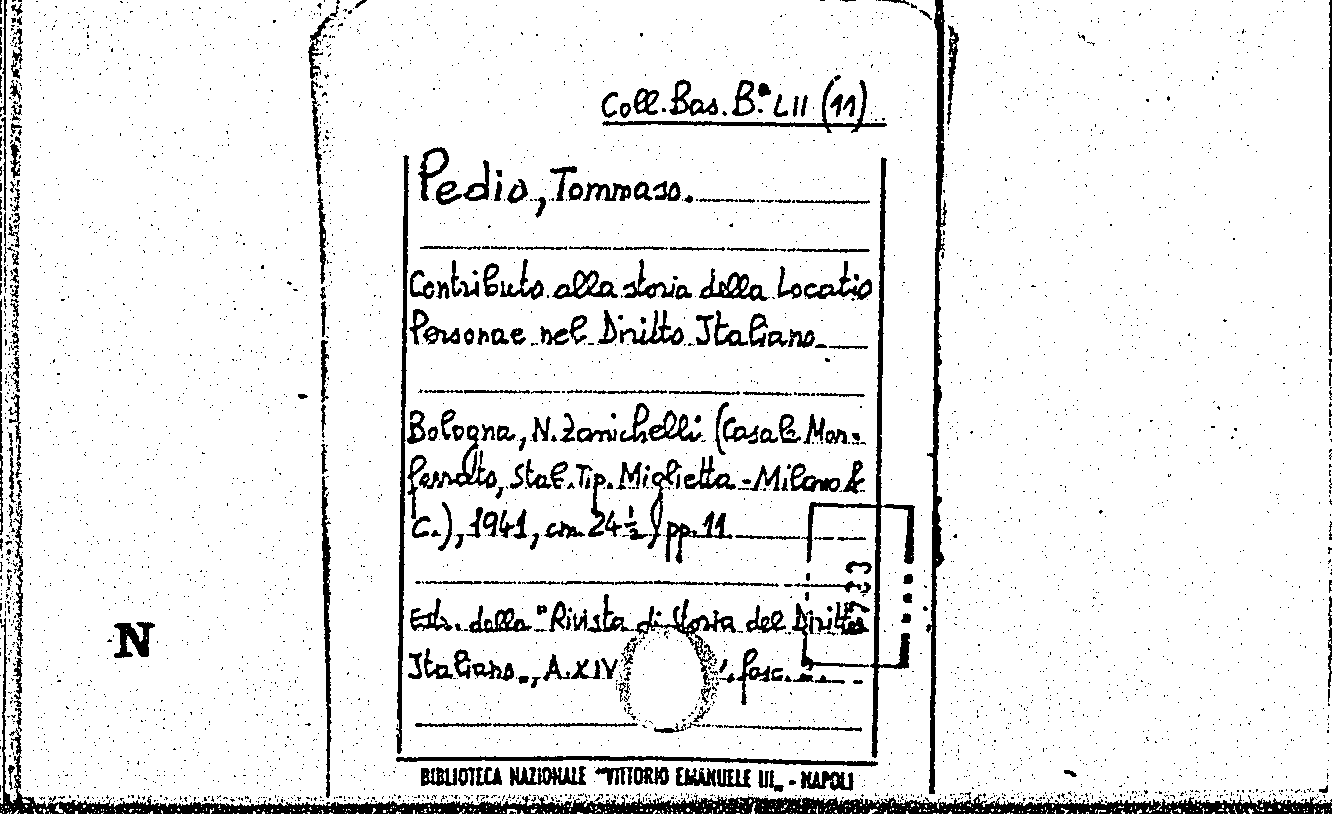 Coll. Bas. B.ª LII (11)
Pedio, Tommaso.
Contributo alla storia della Locatio
Personae nel Diritto Italiano
Bologna, N. Zanichelli (Casale Mon-
ferrato, Stab. Tip. Miglietta - Milano &
C.), 1941, cm. 24 ½, pp. 11
Estr. dalla "Rivista di Storia del Diritto
Italiano„, A. XIV fasc.
N
BIBLIOTECA NAZIONALE "VITTORIO EMANUELE III„ - NAPOLI